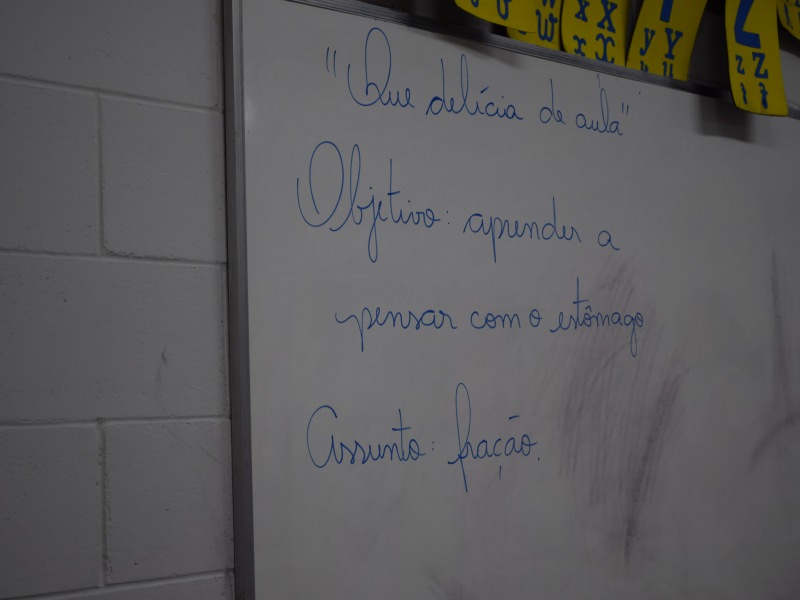 w W
w
x X
x X
y Y
y Y
Z
z Z
z Z
"Que delícia de aula"
Objetivo: aprender a
pensar com o estômago
Assunto: fração.